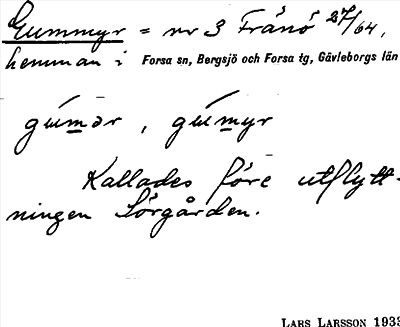 Gummyr = nr 3 Frånö 27/64,
hemman i Forsa sn, Bergsjö och Forsa tg, Gävleborgs län
gúmər, gúmyr
Kallades före utflytt-
ningen Sörgården.
LARS LARSSON 1933